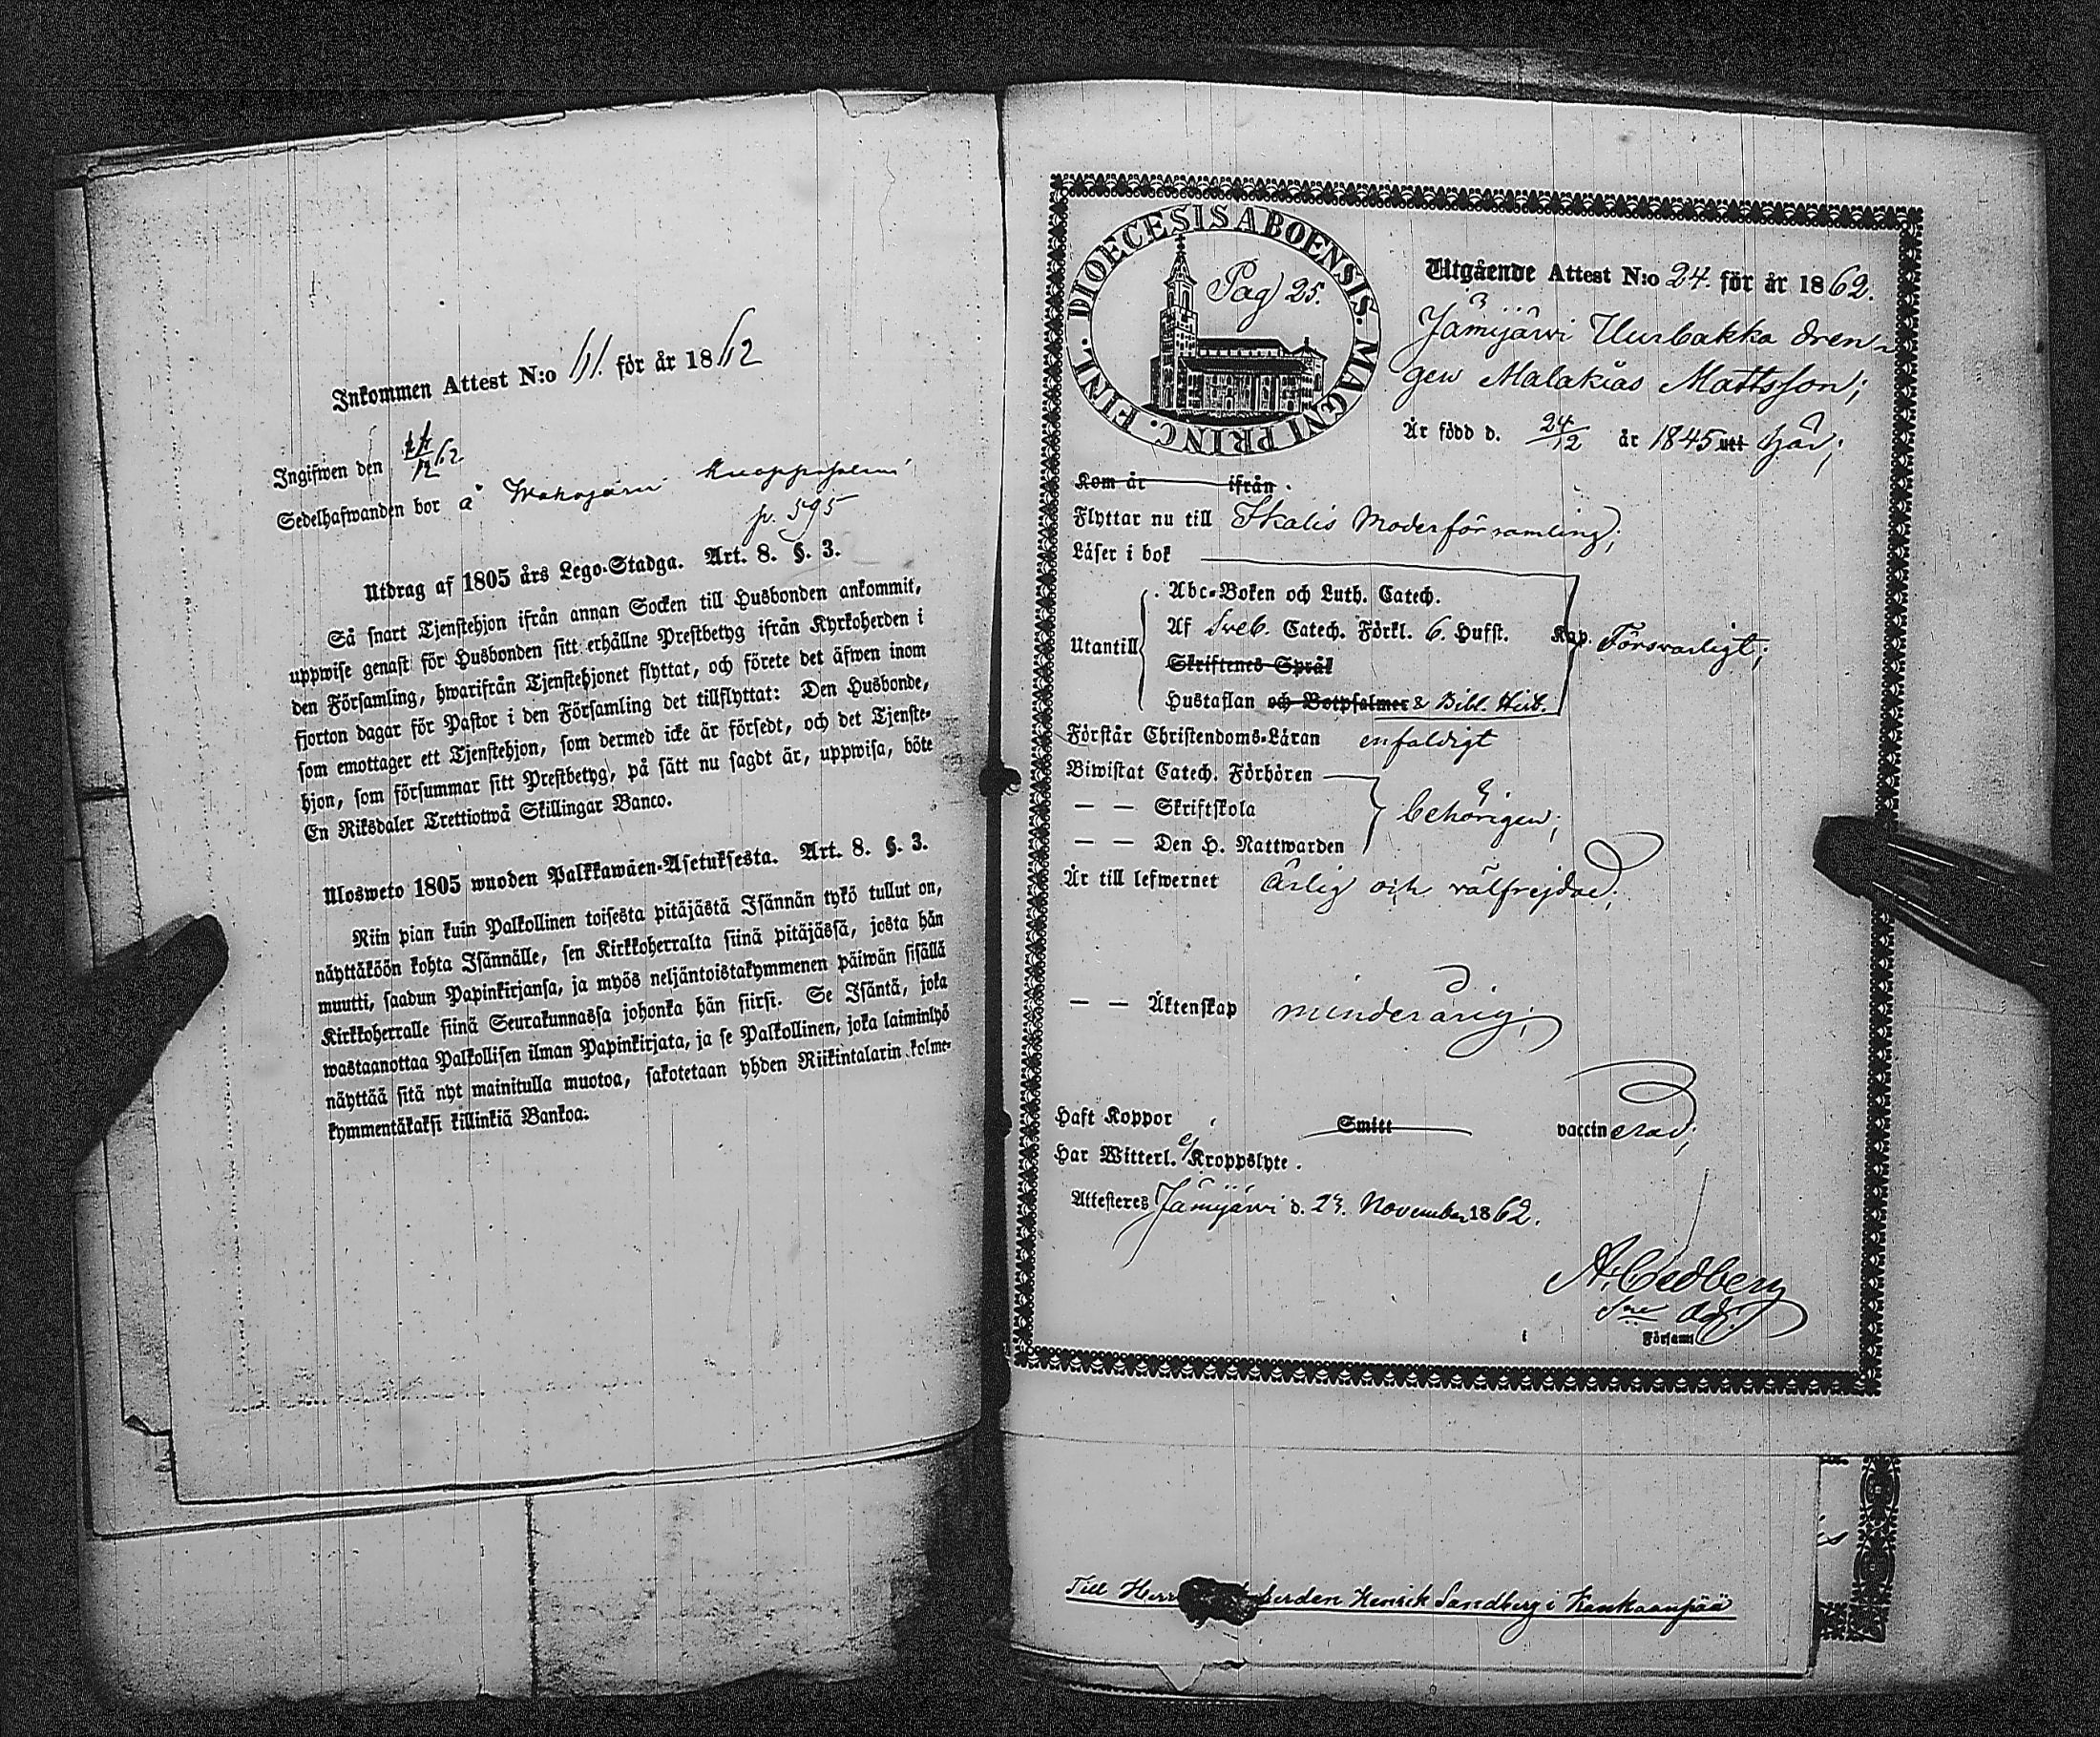 Inkommen Attest N:o 61. för år 1862
Ingifwen den 12 62
Sedelhafwanden bor å
p. 595
Utdrag af 1805 års Lego-Stadga. Art. 8. §. 3.
Så snart Tjenstehjon ifrån annan Socken till Husbonden ankommit,
uppwise genast för Husbonden sitt erhållne Prestbetyg ifrån Kyrkoherden i
den Församling, hwarifrån Tjenstehjonet flyttat, och förete det äfwen inom
fjorton dagar för Pastor i den Församling det tillflyttat: Den Husbonde,
som emottager ett Tjenstehjon, som dermed icke är försedt, och det Tjenste-
hjon, som försummar sitt Prestbetyg, på sätt nu sagdt är, uppwisa, böte
En Riksdaler Trettiotwå Skillingar Banco.
Ulosweto 1805 wuoden Palkkawäen-Asetuksesta. Art. 8. §. 3.
Niin pian kuin Palkollinen toisesta pitäjästä Isännän tykö tullut on,
näyttäköön kohta Isännälle, sen Kirkkoherralta siinä pitäjässä, josta hän
muutti, saadun Papinkirjansa, ja myös neljäntoistakymmenen päiwän sisällä
Kirkkoherralle siinä Seurakunnassa johonka hän siirsi. Se Isäntä, joka
wastaanottaa Palkollisen ilman Papinkirjata, ja se Palkollinen, joka laiminlyö
näyttää sitä nyt mainitulla muotoa, sakotetaan yhden Riikintalarin kolme-
kymmentäkaksi killinkiä Bankoa.
DIOECESIS ABOENSIS. MAGNI PRINC. FINL.
Pag 25.
Utgående Attest N:o 24. för år 1862.
Jämijärvi Uurbakka dren-
gen Malakias Mattsson;
Är född d. 24/12 år 1845 utt här;
Kom år ifrån
Flyttar nu till Ikalis Moderförsamling;
Läser i bok
Abc-Boken och Luth. Catech.
Utantill Af Sveb. Catech. Förkl. 6. Hufst. Kap. Försvarligt;
Skriftenes Språk
Hustaflan och Botpsalmer & Bibl. Hist.
Förstår Christendoms-Läran enfaldigt
Biwistat Catech. Förhören
— — Skriftskola behörigen;
— — Den H. Nattwarden
Är till lefwernet ärlig och välfrejdad;
— — Äktenskap minderårig;
Haft Koppor Smitt vaccinerad;
Har Witterl. ej Kroppslyte.
Attesteres Jämijärvi d. 23. November 1862.
A. Cedberg
Församl
Till Herr Henrik Sandberg i Kankaanpää